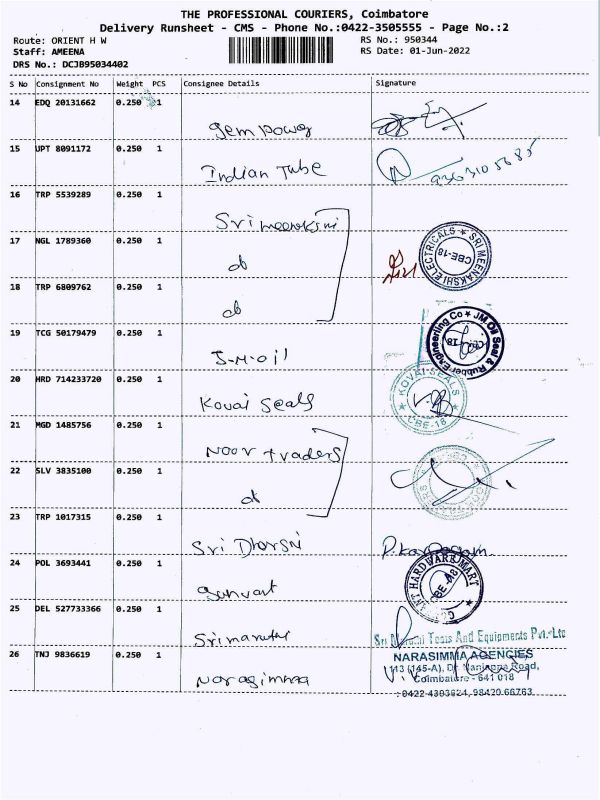 THE PROFESSIONAL COURIERS, Coimbatore
Delivery Runsheet - CMS - Phone No.:0422-3505555 - Page No.:2
Route: ORIENT H W
RS No.: 950344
Staff: AMEENA
RS Date: 01-Jun-2022
DRS No.: DCJB95034402
S No Consignment No Weight PCS Consignee Details Signature
14 EDQ 20131662 0.250 1
gem power
15 UPT 8091172 0.250 1
Indian Tube
16 TRP 5539289 0.250 1
Sri meenakshi
17 NGL 1789360 0.250 1
do
SRI MEENAKSHI ELECTRICALS CBE-18
18 TRP 6809762 0.250 1
do
19 TCG 50179479 0.250 1
J-M-oil
JM Oil Seal & Rubber Engineering Co
20 HRD 714233720 0.250 1
Kovai Seals
KOVAI SEALS CBE-18
21 MGD 1485756 0.250 1
Noor traders
22 SLV 3835100 0.250 1
do
23 TRP 1017315 0.250 1
Sri Dharsni
24 POL 3693441 0.250 1
HARDWARE MART
25 DEL 527733366 0.250 1
Sri maruthi
Tools And Equipments Pvt.Ltd
26 TNJ 9836619 0.250 1
Narasimma
NARASIMMA AGENCIES
113 (145-A), Dr. Nanjappa Road,
Coimbatore - 641 018